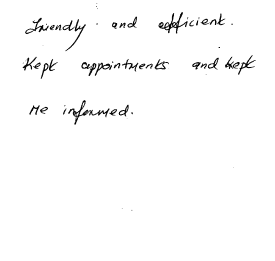 Friendly and efficient.
Kept appointments and kept
me informed.